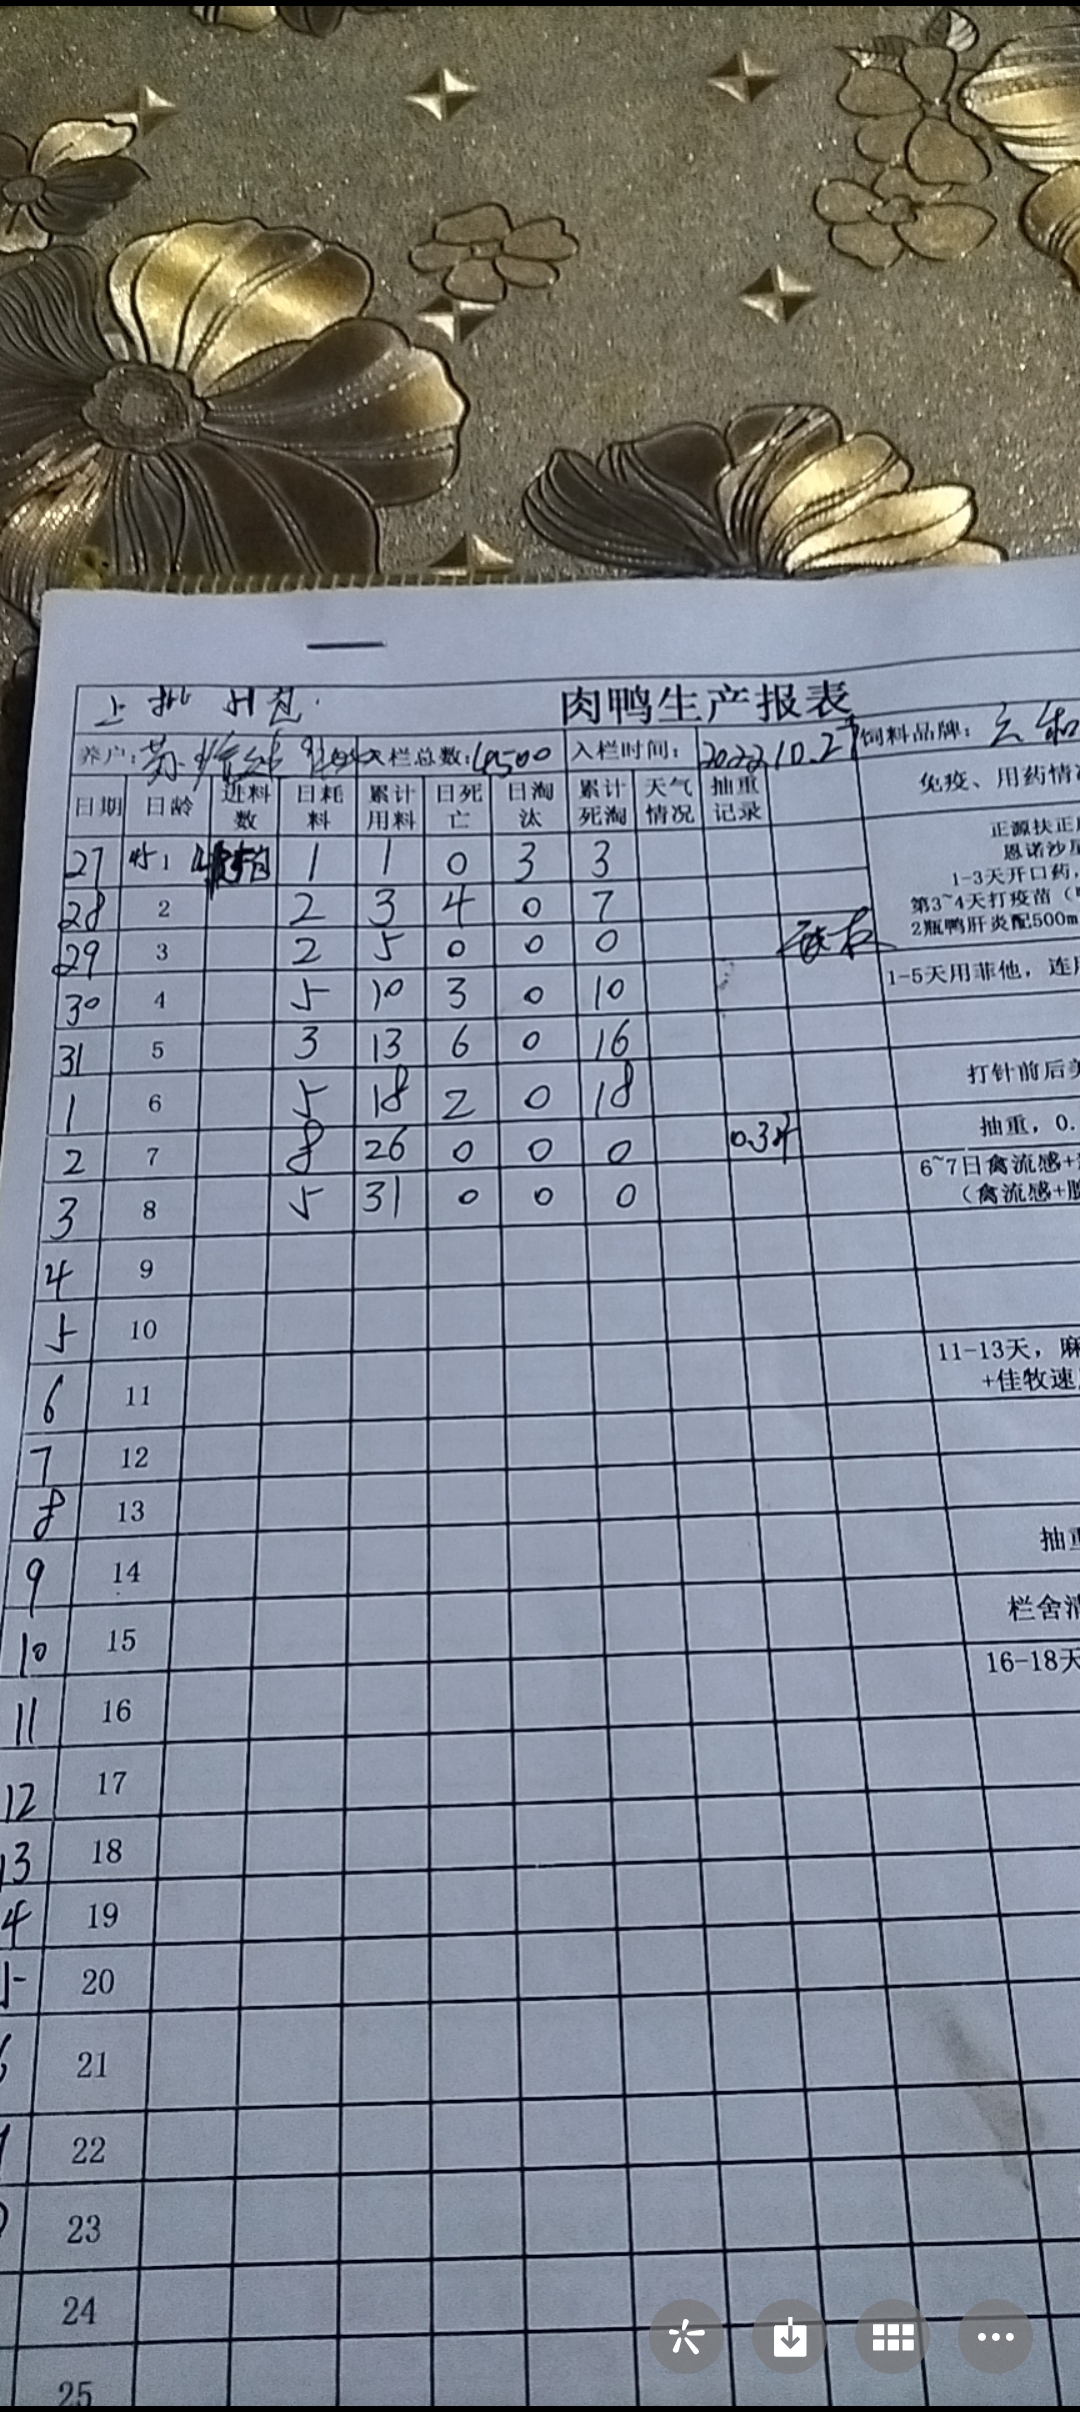 上批
肉鸭生产报表
养户: 入栏总数:4500 入栏时间: 2022.10.27 饲料品牌:
日期 日龄 进料数 日耗料 累计用料 日死亡 日淘汰 累计死淘 天气情况 抽重记录 免疫、用药情
27 1 1 1 0 3 3
正源扶正
恩诺沙星
1-3天开口药,
28 2 2 3 4 0 7
第3~4天打疫苗(
2瓶鸭肝炎配500m
29 3 2 5 0 0 0
30 4 5 10 3 0 10
1-5天用菲他,连
31 5 3 13 6 0 16
1 6 5 18 2 0 18
打针前后
2 7 8 26 0 0 0 0.3斤
抽重,0.
3 8 5 31 0 0 0
6~7日禽流感+
(禽流感+
4 9
5 10
6 11
11-13天,麻
+佳牧速
7 12
8 13
9 14
抽重
10 15
栏舍清
11 16
16-18天
12 17
13 18
4 19
5 20
6 21
22
23
24
25